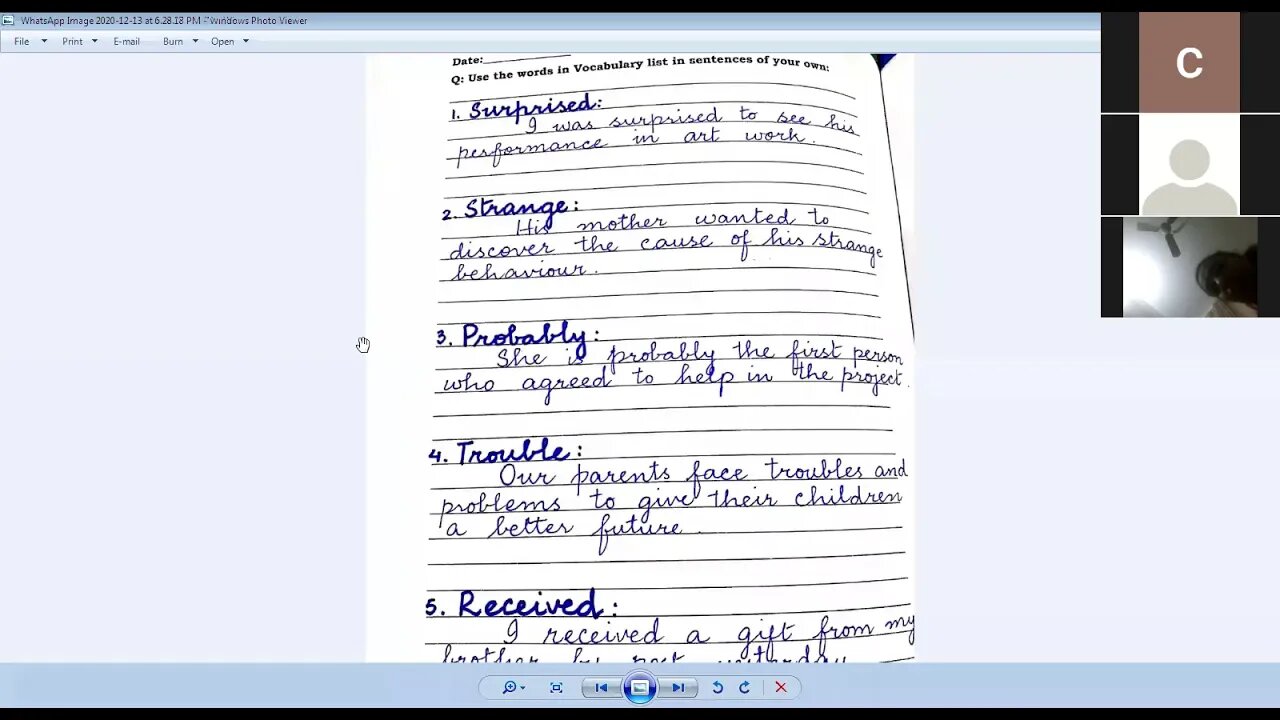 WhatsApp Image 2020-12-13 at 6.28.18 PM - Windows Photo Viewer
File Print E-mail Burn Open
Date:
Q: Use the words in Vocabulary list in sentences of your own:
1. Surprised:
I was surprised to see his
performance in art work.
2. Strange:
His mother wanted to
discover the cause of his strange
behaviour.
3. Probably:
She is probably the first person
who agreed to help in the project.
4. Trouble:
Our parents face troubles and
problems to give their children
a better future.
5. Received:
I received a gift from my
brother by post yesterday
C